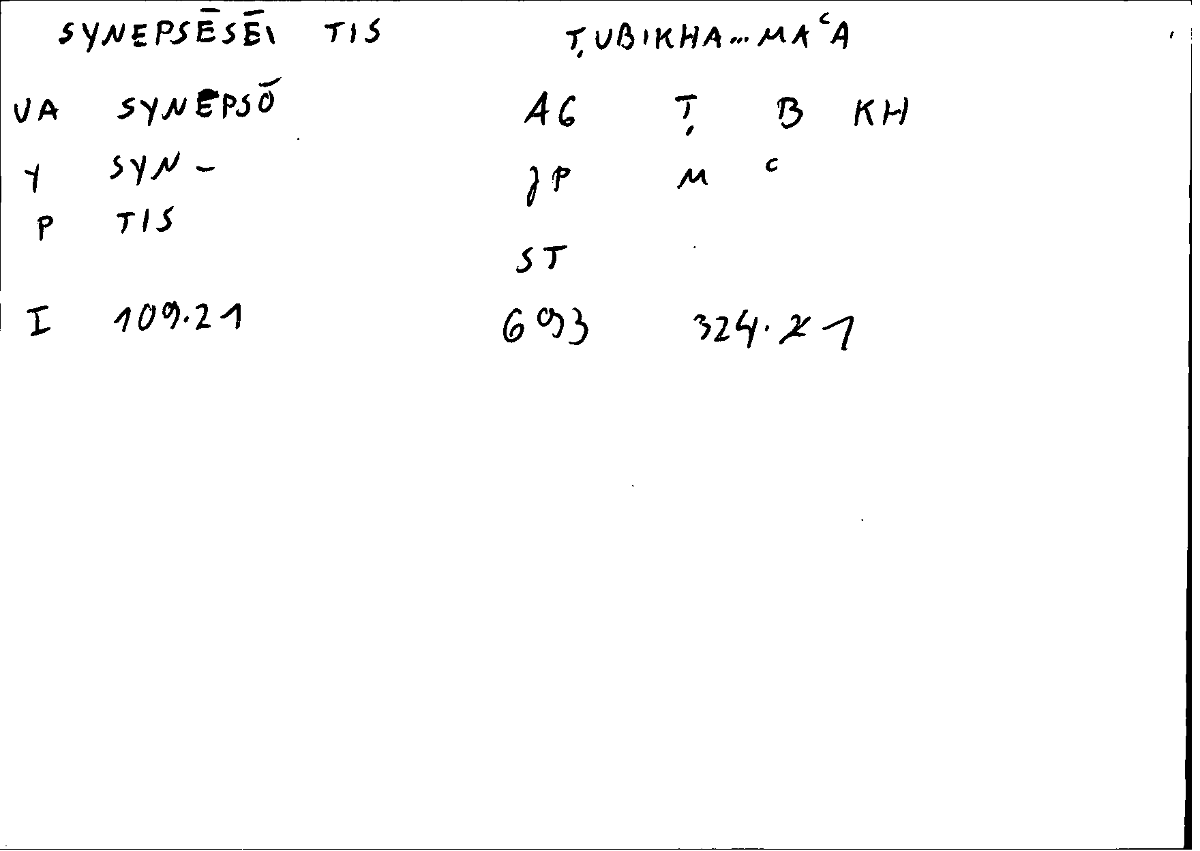 SYNEPSĒSĒI TIS ṬUBIKHA...MAᶜA
VA SYNEPSŌ AG Ṭ B KH
Y SYN- JP M ᶜ
P TIS
ST
I 109.21 693 324.21